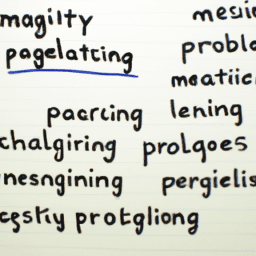 magilty mesie
pagelatting proble
meatiic
pacring lening
chalgiring prolqoes
nesngining pergielis
protgliong